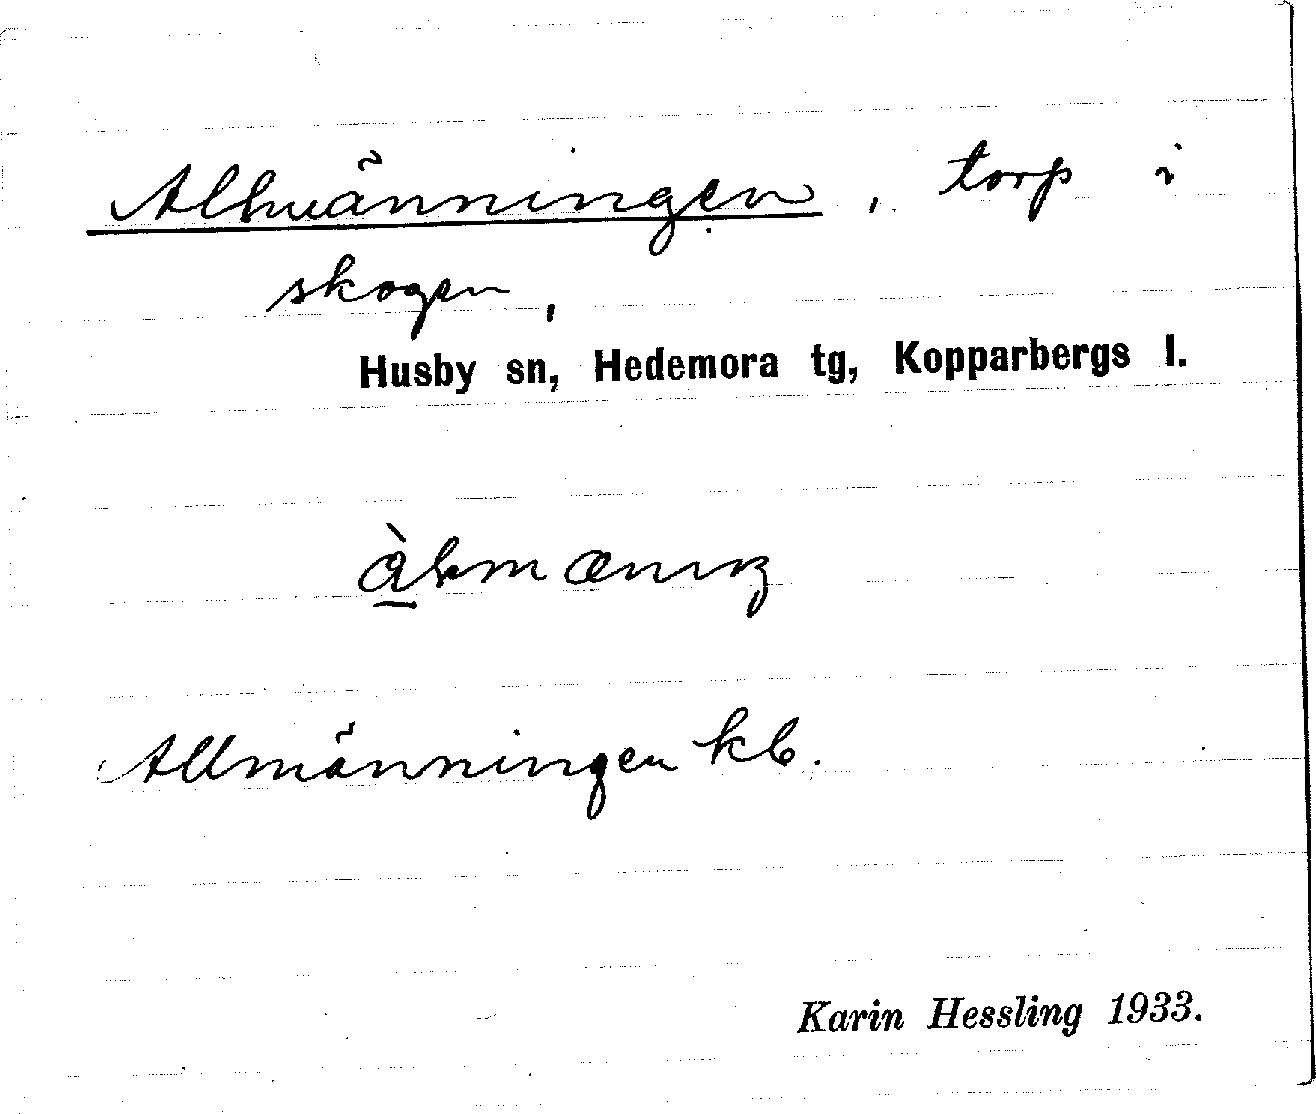 Allmänningen, torp i
skogen,
Husby sn, Hedemora tg, Kopparbergs l.
Allmänningen kb.
Karin Hessling 1933.